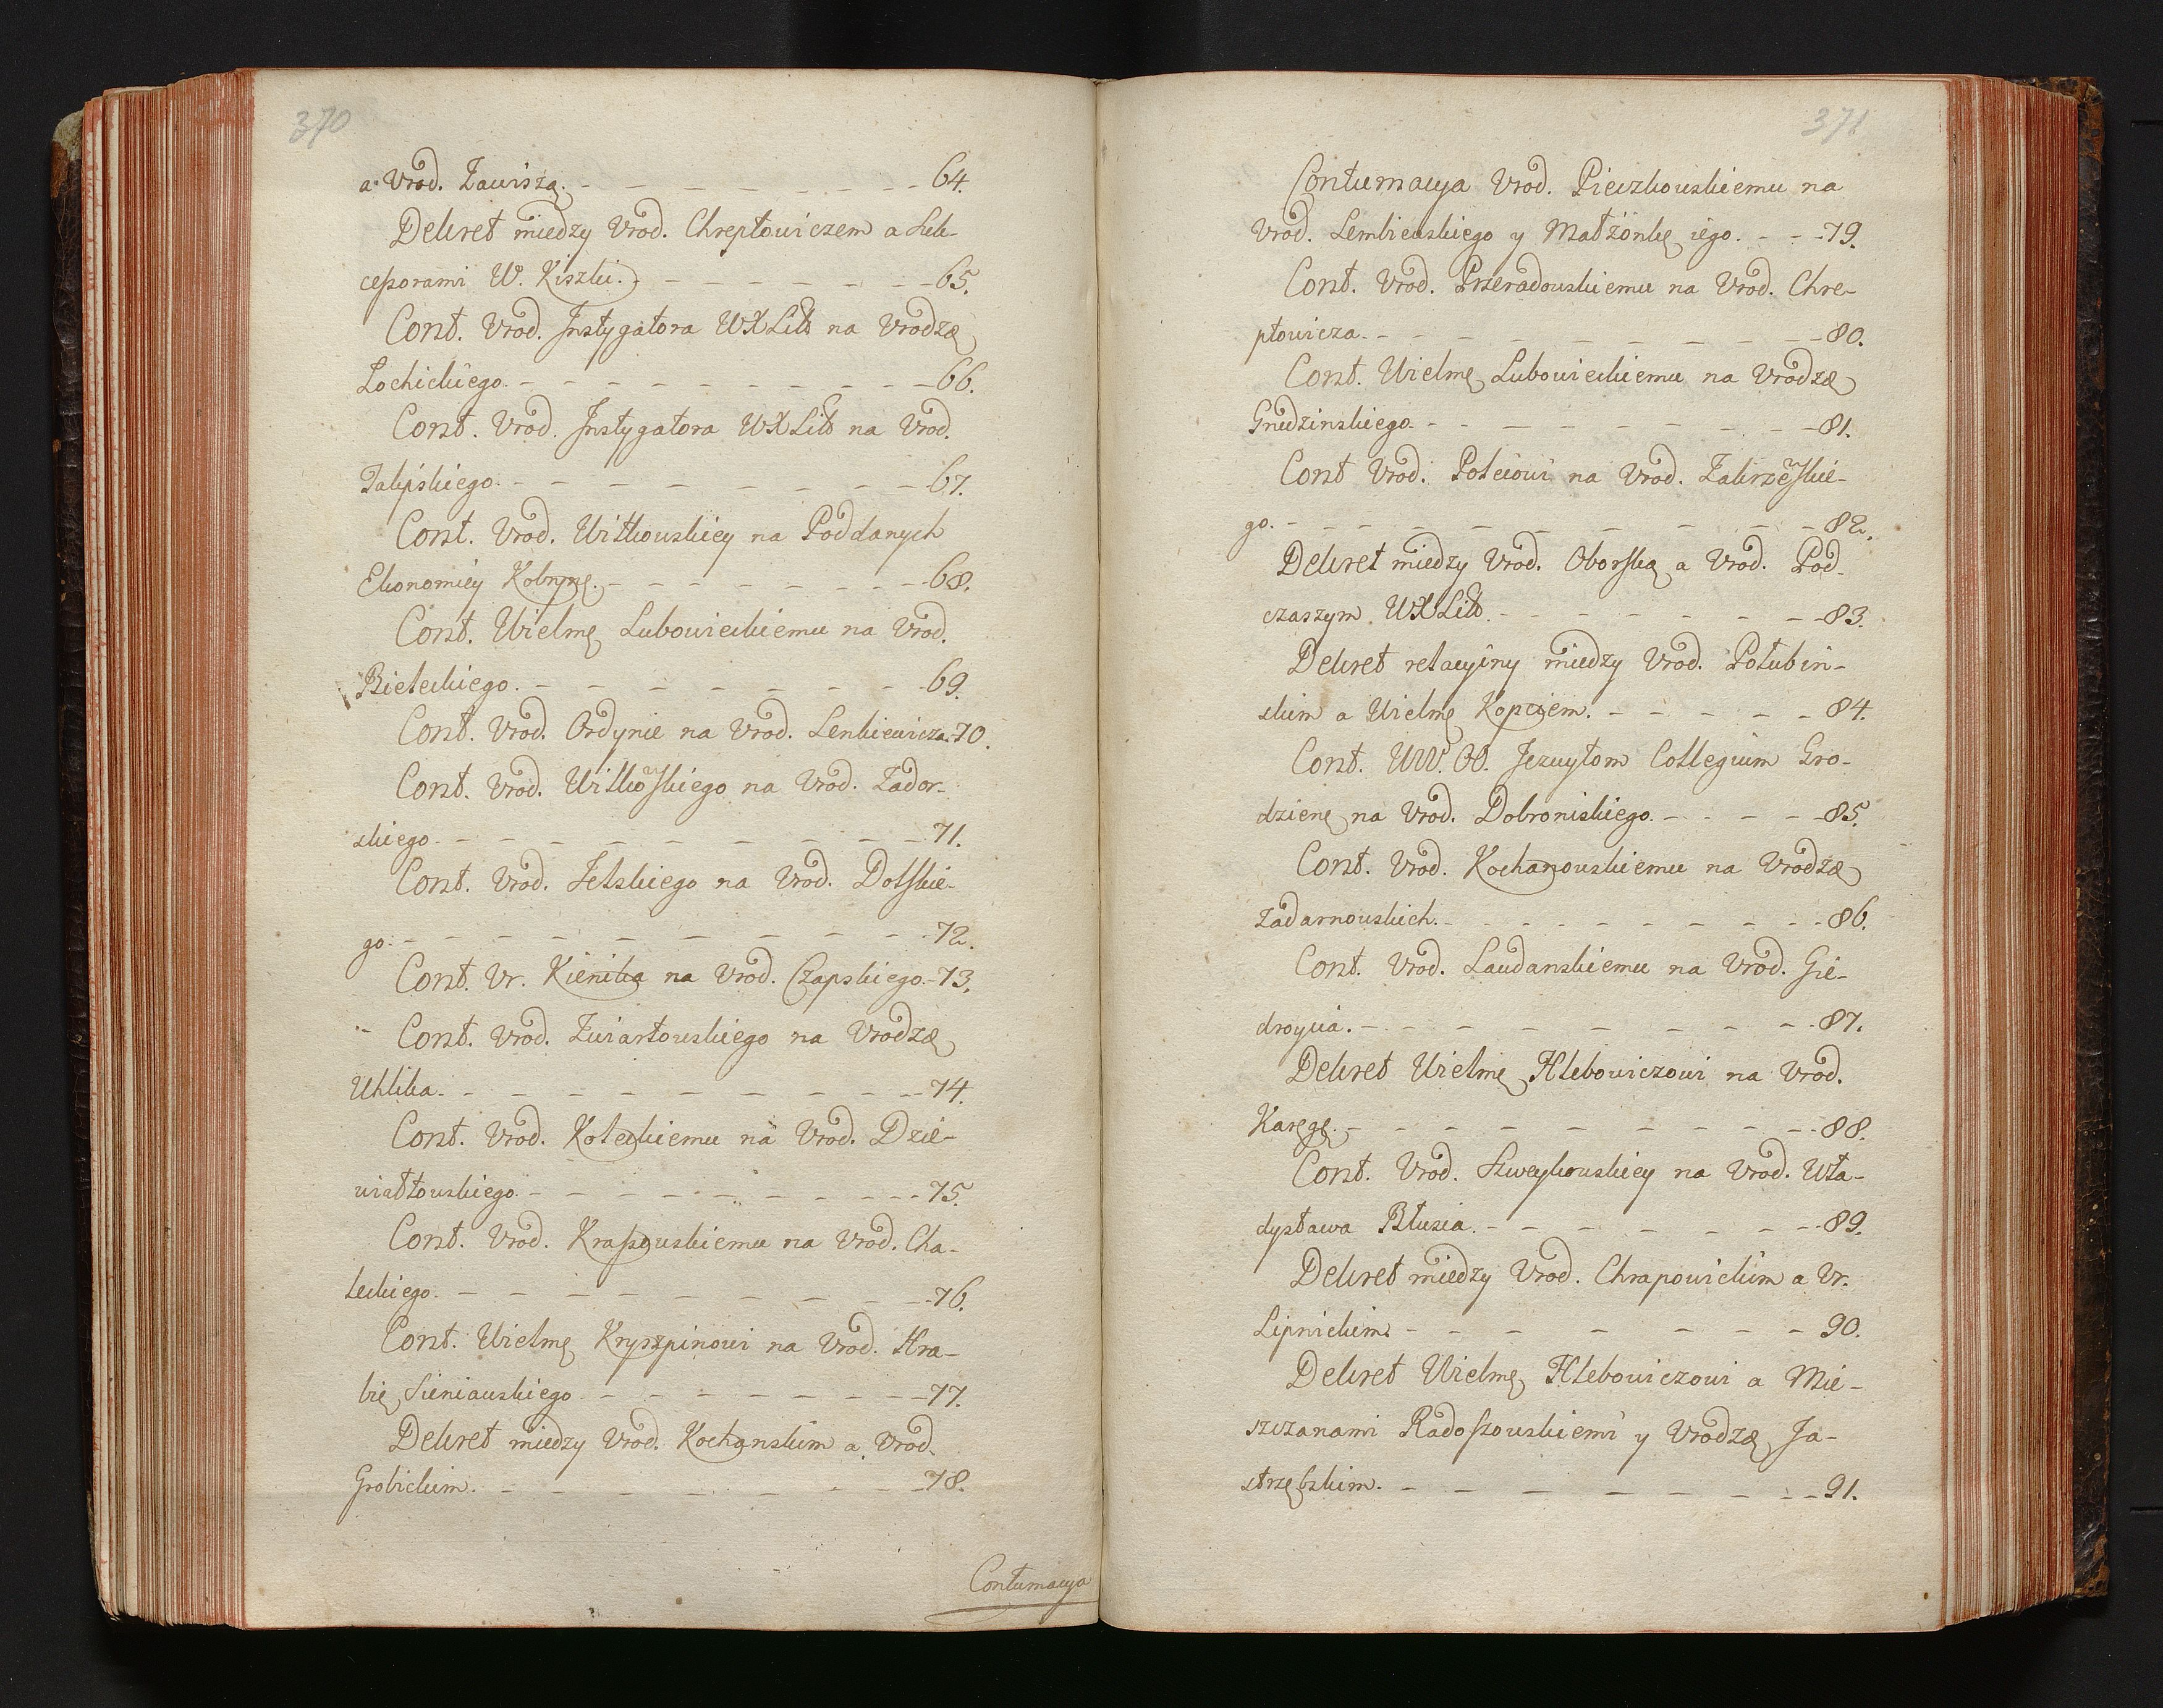 370
a Vrod. Zawiszą. - - - - - - - - 64.
Dekret między Vrod. Chreptowiczem a Suk-
cessorami W. Kiszki. - - - - - - - 65.
Cont. Vrod. Instygatora WXLitt na Vrodzo
Łochickiego. - - - - - - - - - 66.
Cont. Vrod. Instygatora WXLitt na Vrod.
Zalipskiego. - - - - - - - - 67.
Cont. Vrod. Witkowskiey na Poddanych
Ekonomiey Kobryn. - - - - - - - 68.
Cont. Wielmo Lubowieckiemu na Vrod.
Bieleckiego. - - - - - - - - 69.
Cont. Vrod. Ordynie na Vrod. Lenkiewicza. 70.
Cont. Vrod. Witkowskiego na Vrod. Zador-
skiego. - - - - - - - - 71.
Cont. Vrod. Jelskiego na Vrod. Dolskie-
go. - - - - - - - - 72.
Cont. Vr. Kienika na Vrod. Czapskiego. 73.
Cont. Vrod. Zwiartowskiego na Vrodzo
Uhlika. - - - - - - - - - 74.
Cont. Vrod. Koteckiemu na Vrod. Dzie-
wiałtowskiego. - - - - - - - - 75.
Cont. Vrod. Krassowskiemu na Vrod. Cha-
leckiego. - - - - - - - - 76.
Cont. Wielmo Kryszpinowi na Vrod. Hra-
bię Sieniawskiego. - - - - - - - 77.
Dekret między Vrod. Kochanskim a Vrod.
Grobickim. - - - - - - - - 78.
Contumacya
371
Contumacya Vrod. Pieczkowskiemu na
Vrod. Lembiewskiego y Małżonkę iego. - - 79.
Cont. Vrod. Przeradowskiemu na Vrod. Chre-
ptowicza. - - - - - - - - - 80.
Cont. Wielmo Lubowieckiemu na Vrodzo
Grudzinskiego. - - - - - - - - 81.
Cont Vrod. Pocieiowi na Vrod. Zakrzewskie-
go. - - - - - - - - - 82.
Dekret między Vrod. Oborską a Vrod. Pod-
czaszym WXLitt. - - - - - - - 83.
Dekret relacyiny między Vrod. Połubin-
skim a Wielmo Kopciem. - - - - - 84.
Cont. WW. OO. Jezuytom Collegium Gro-
dzien na Vrod. Dobroniskiego. - - - - 85.
Cont. Vrod. Kochanowskiemu na Vrodzo
Zadarnowskich. - - - - - - - - 86.
Cont. Vrod. Laudanskiemu na Vrod. Gie-
droycia. - - - - - - - - 87.
Dekret Wielmo Hlebowiczowi na Vrod.
Karęgę. - - - - - - - - - 88.
Cont. Vrod. Szweykowskiey na Vrod. Wła-
dysława Blusia. - - - - - - - 89.
Dekret między Vrod. Chrapowickim a Vr.
Lipnickim. - - - - - - - 90.
Dekret Wielmo Hlebowiczowi a Mie-
szczanami Radoszkowskiemi y Vrodzo Ja-
strzębskim. - - - - - - - - 91.